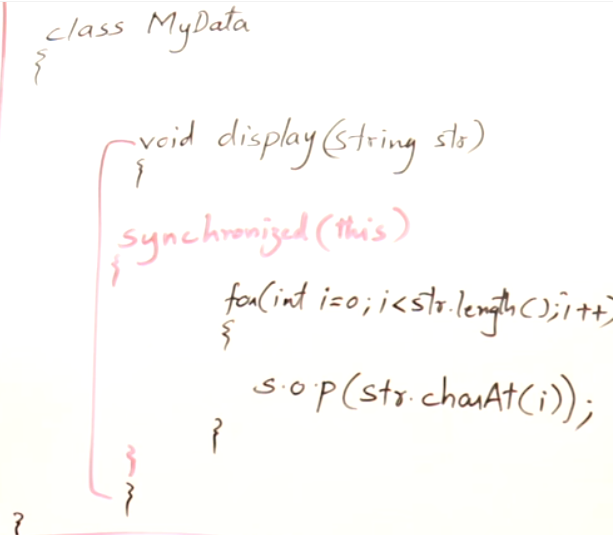 class MyData
{
void display(string str)
{
synchronized(this)
{
for(int i=0; i<str.length(); i++)
{
s.o.p(str.charAt(i));
}
}
}
}